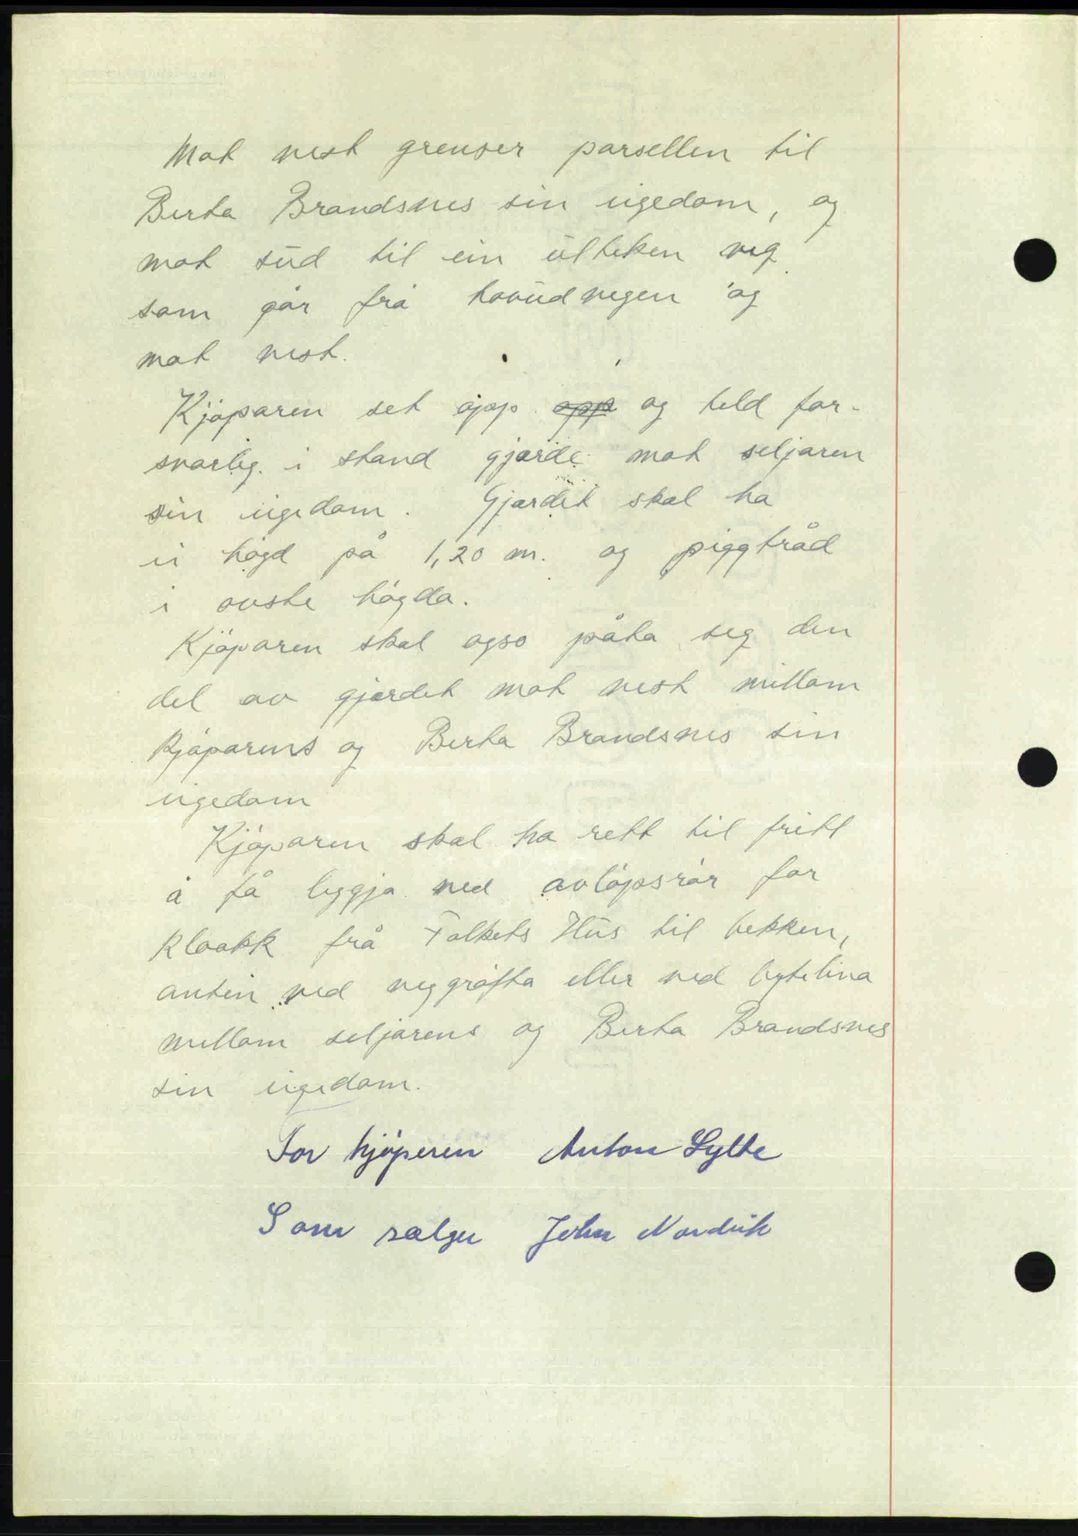 Mot vest grenser parsellen til
Berta Brandsnes sin eigedom, og
mot sūd til ein ūtteken veg
som går frå hovūdvegen og
mot vest.
Kjøparen set opp og held for-
svarleg i stand gjerde mot seljaren
sin eigedom. Gjerdet skal ha
ei høgd på 1,20 m. og piggtråd
i øvste høgda.
Kjøparen skal ogso påta seg den
del av gjerdet mot vest millom
kjøparens og Berta Brandsnes sin
eigedom
Kjøparen skal ha rett til fritt
å få leggja ned avløpsrør for
kloakk frå Folkets Hūs til bekken,
anten ved veggrøfta eller ved bytelina
millom seljarens og Berta Brandsnes
sin eigedom.
For kjøperen Anton Sylte
Som sælger John Nordvik